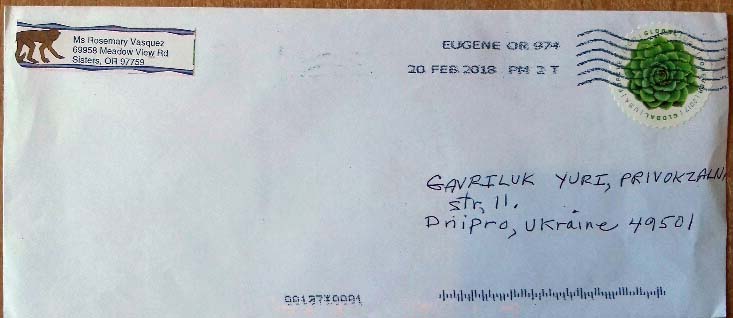 Ms Rosemary Vasquez
69958 Meadow View Rd
Sisters, OR 97759
EUGENE OR 974
20 FEB 2018 PM 2 T
GLOBAL
2017 | GLOBAL | USA
GAVRILUK YURI, PRIVOKZALN
str, 11.
Dnipro, Ukraine 49501
00127X0001